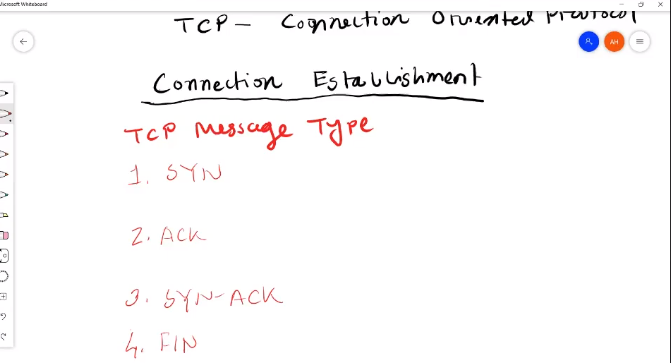 Microsoft Whiteboard
TCP - Connection Oriented Protocol
AH
Connection Establishment
TCP Message Type
1. SYN
2. ACK
3. SYN-ACK
4. FIN